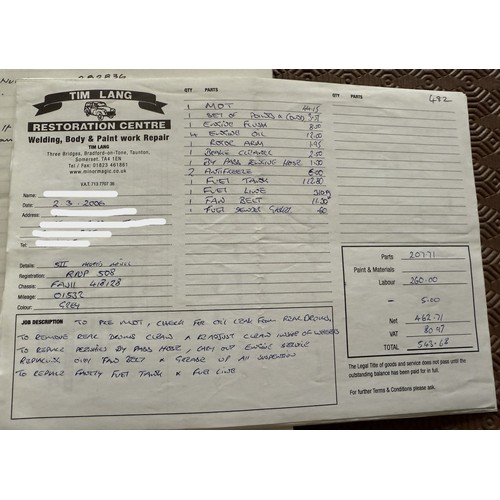 TIM LANG
RESTORATION CENTRE
Welding, Body & Paint work Repair
TIM LANG
Three Bridges, Bradford-on-Tone, Taunton,
Somerset, TA4 1EN
Tel / Fax 01823 461861
www.minormagic.co.uk
V.A.T. 713 7707 36
Name:
Date: 2 3 - 2006
Address:
Tel:
Details:
Registration: RRP 508
Chassis:
Mileage: 01532
Colour: GREY
QTY PARTS QTY PARTS
482
1 MOT 44.15
1 SET OF POINTS & COND
1 ENGINE FLUSH
4 ENGINE OIL 12.00
1 ROTOR ARM 1.95
1 BRAKE CLEANER 2.00
1 BY PASS ENGINE HOSE 1.00
2 ANTIFREEZE 6.00
1 FUEL TANK 112.80
1 FUEL LINE
1 FAN BELT
1 FUEL SENDER GASKET .60
Parts 207.71
Paint & Materials
Labour 260.00
- 5.00
Net 462.71
VAT 80.97
TOTAL 543.68
JOB DESCRIPTION TO PRE MOT, CHECK FOR OIL LEAK FROM REAR DRUMS,
TO REMOVE REAR DRUMS CLEAN & READJUST CLEAN INSIDE OF WHEELS
TO REPLACE PERISHED BY PASS HOSE, CARRY OUT ENGINE SERVICE
REPLACING OILY FAN BELT & GREASE UP ALL SUSPENSION
TO REPLACE FAULTY FUEL TANK & FUEL LINE
The Legal Title of goods and service does not pass until the
outstanding balance has been paid for in full.
For further Terms & Conditions please ask.